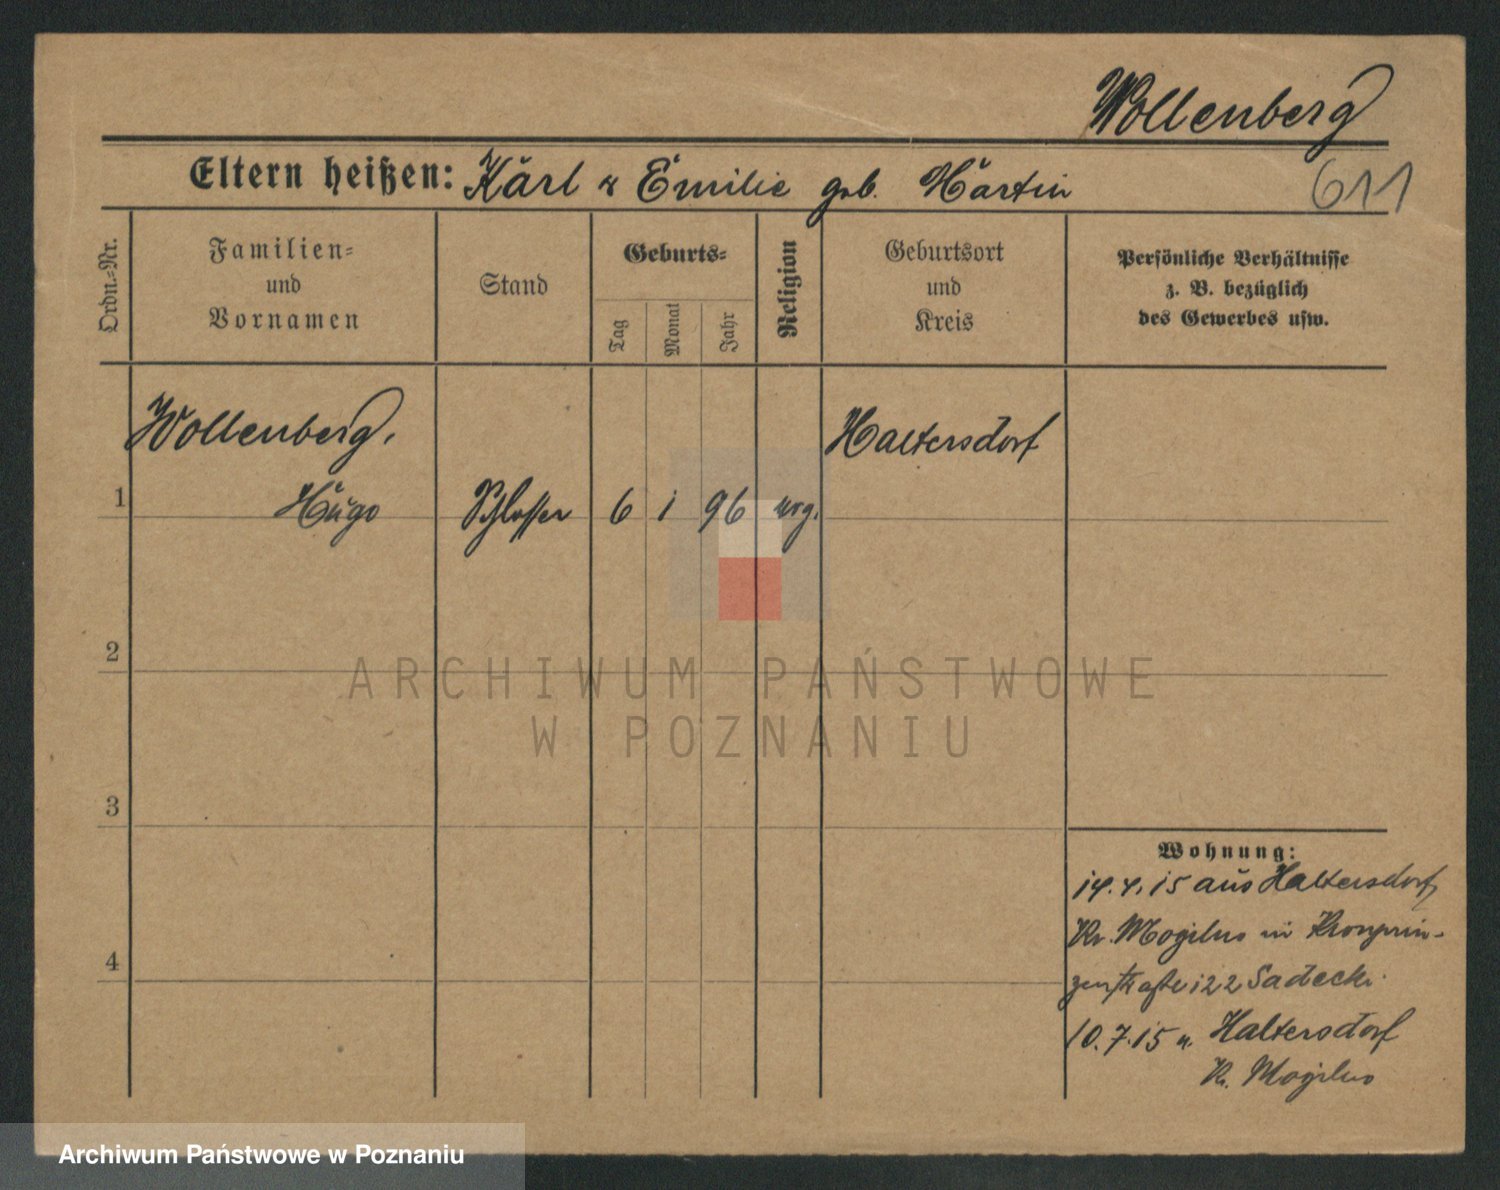 Wollenberg
Eltern heißen: Karl & Emilie geb. Martin
611
Ordn.=Nr.
Familien=
und
Vornamen
Stand
Geburts=
Tag
Monat
Jahr
Religion
Geburtsort
und
Kreis
Persönliche Verhältnisse
z. B. bezüglich
des Gewerbes usw.
Wollenberg,
Haltersdorf
1
Hugo
Schlosser
6
1
96
evg.
2
ARCHIWUM PAŃSTWOWE
W POZNANIU
3
Wohnung:
14.4.15 aus Haltersdorf,
Kr. Mogilno in Kronprin-
zenstraße 122 Sadecki
4
10.7.15 n. Haltersdorf
Kr. Mogilno
Archiwum Państwowe w Poznaniu